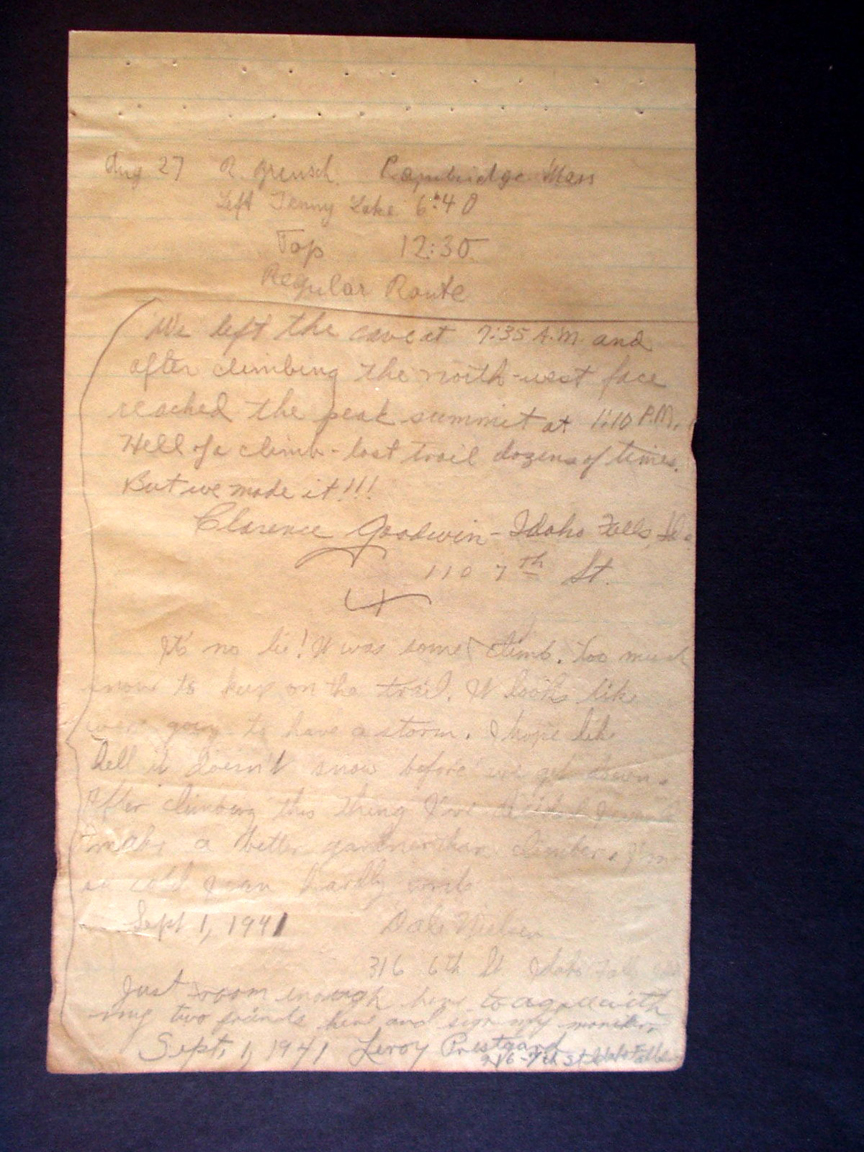 Aug 27 R. Cambridge Mass
Left Jenny Lake 6:40
Top 12:30
Regular Route
We left the cave at 7:35 A.M. and
after climbing the north-west face
reached the peak summit at 1:10 P.M.
Hell of a climb - lost trail dozens of times.
But we made it!!!
Clarence Goodwin - Idaho Falls, Ida
110 7th St.
It's no lie! It was some climb. Too much
snow to keep on the trail. It looks like
were going to have a storm. I hope like
Hell it doesn't snow before we get down.
After climbing this thing I've decided
make a better gardner than climber. I'm
so cold I can hardly
Sept 1, 1941 Dale Nielsen
316 6th St. Idaho Falls
Just room enough here to agree with
my two friends here and sign my moniker
Sept. 1, 1941 Leroy Prestgard
7th St Idaho Falls